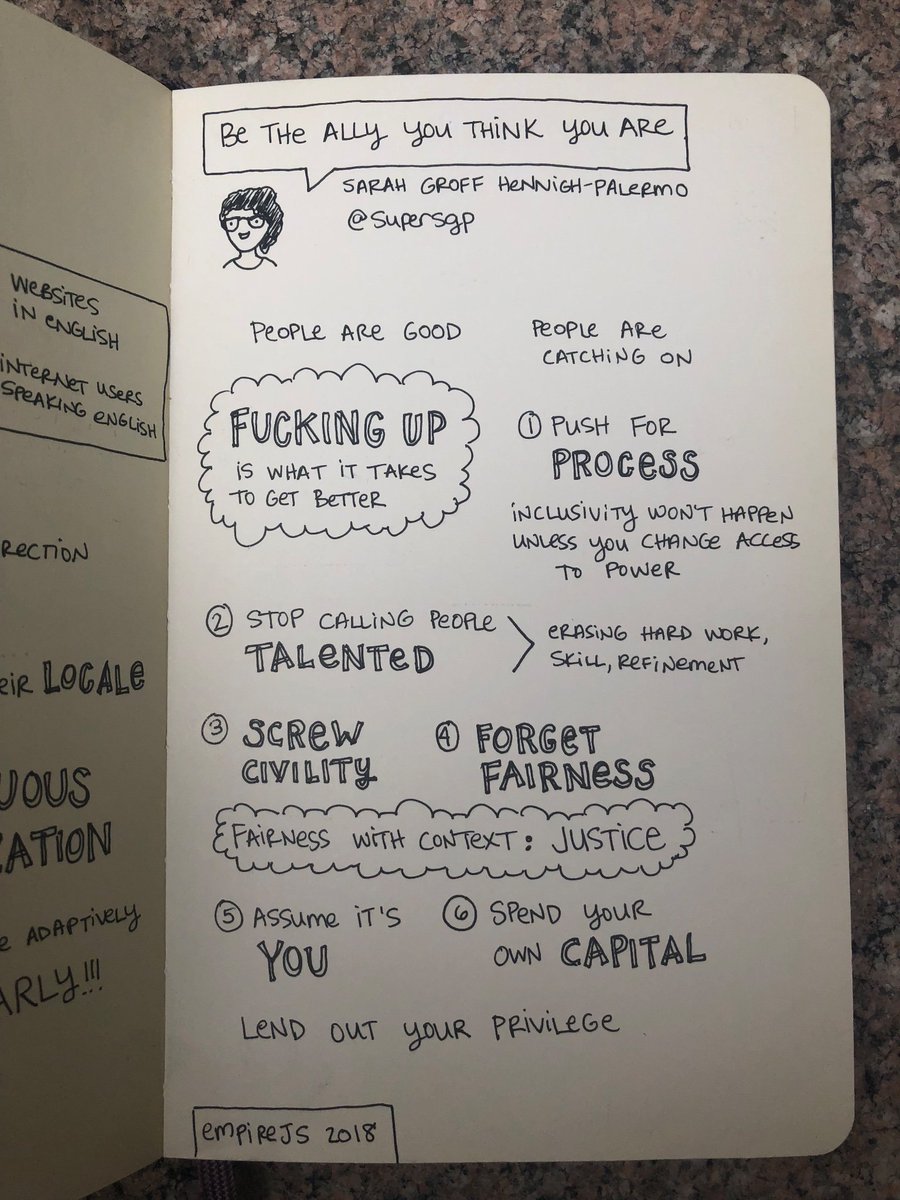 WEBSITES
IN ENGLISH
INTERNET USERS
SPEAKING ENGLISH
LOCALE
ADAPTIVELY
BE THE ALLY YOU THINK YOU ARE
SARAH GROFF HENNIGH-PALERMO
@SUPERSGP
PEOPLE ARE GOOD
PEOPLE ARE
CATCHING ON
FUCKING UP
IS WHAT IT TAKES
TO GET BETTER
① PUSH FOR
PROCESS
INCLUSIVITY WON'T HAPPEN
UNLESS YOU CHANGE ACCESS
TO POWER
② STOP CALLING PEOPLE
TALENTED
ERASING HARD WORK,
SKILL, REFINEMENT
③ SCREW
CIVILITY
④ FORGET
FAIRNESS
FAIRNESS WITH CONTEXT: JUSTICE
⑤ ASSUME IT'S
YOU
⑥ SPEND YOUR
OWN CAPITAL
LEND OUT YOUR PRIVILEGE
empireJS 2018